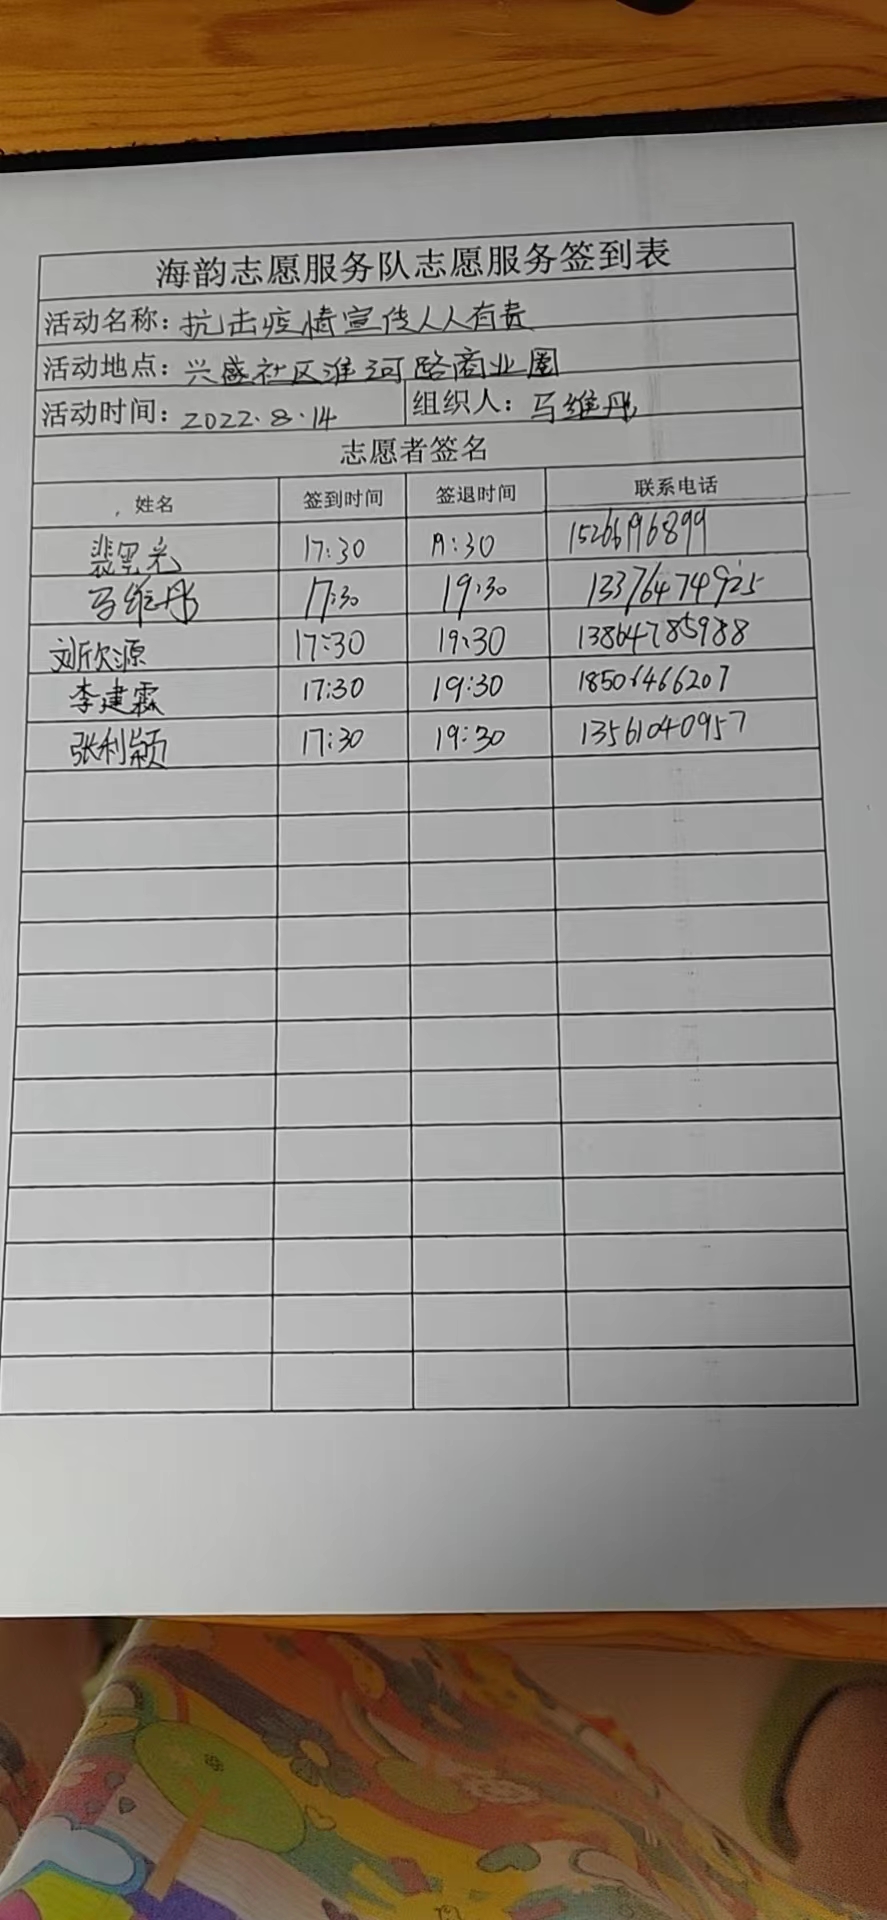 海韵志愿服务队志愿服务签到表
活动名称：抗击疫情宣传人人有责
活动地点：兴盛社区淮河路商业圈
活动时间：2022.8.14 组织人：马维彤
志愿者签名
姓名 签到时间 签退时间 联系电话
裴 17:30 19:30
马维彤 17:30 19:30 13376474925
刘欣源 17:30 19:30 13864785988
李建霖 17:30 19:30 18506466207
张利颖 17:30 19:30 13561040957